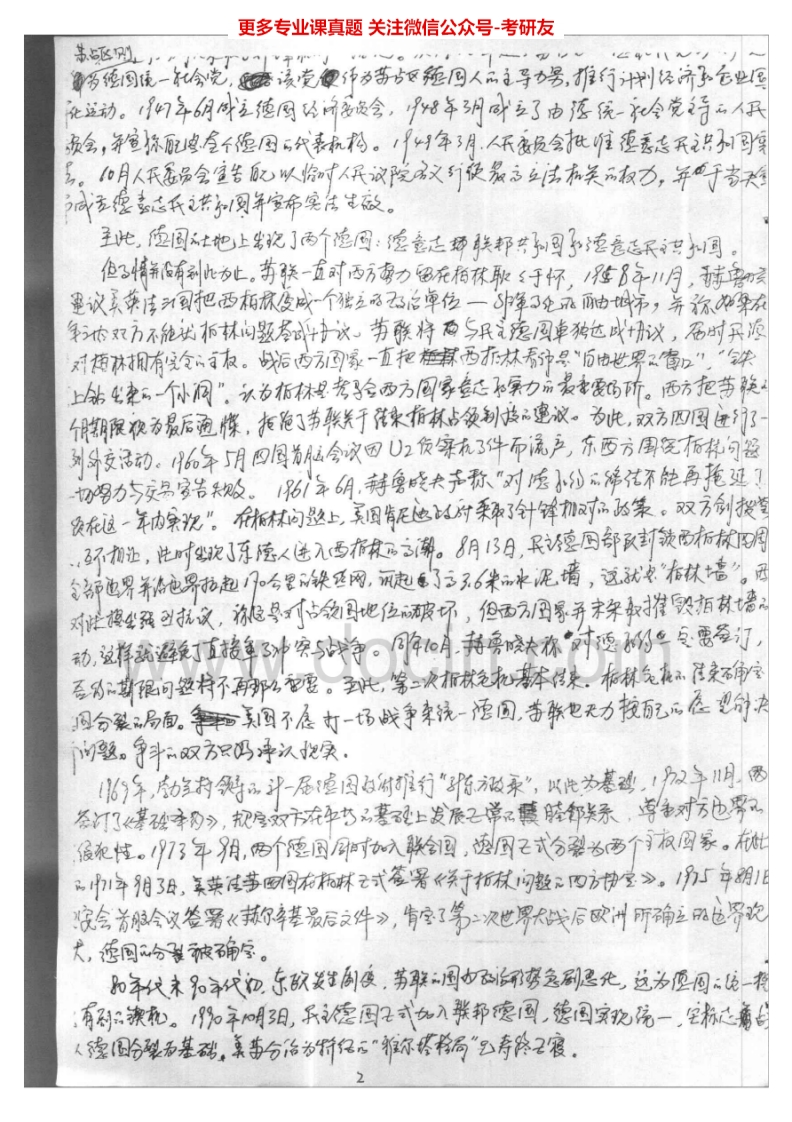 更多专业课真题 关注微信公众号-考研友
苏占区则
为德国统一社会党,该党作为苏占区德国人的主导力量,推行计划经济和企业国
化运动。1947年6月成立德国经济委员会,1948年3月成立了由德统一社会党主导的人民
委会,并宣称自己是全个德国的代表机构。1949年3月,人民委员会批准德意志民主共和国宪
法。10月人民委员会宣告自己以临时人民议院名义行使最高立法机关的权力,并于当天宣
成立德意志民主共和国并宣布宪法生效。
至此,德国的土地上出现了两个德国:德意志联邦共和国和德意志民主共和国。
但事情并没有到此为止。苏联一直对西方势力留在柏林耿耿于怀,1958年11月,赫鲁晓夫
建议美英法三国把西柏林变成一个独立的政治单位—非军事化的自由城市,并称如果在
双方不能就柏林问题达成协议,苏联将与民主德国单独达成协议,届时民德
对柏林拥有完全的主权。战后西方国家一直把西柏林看作是"自由世界的窗口","铁
上钻出来的一个小洞"。认为柏林是考验西方国家意志和实力的最重要场所。西方把苏联的
个月期限视为最后通牒,拒绝了苏联关于结束柏林占领制度的建议。为此,双方四国进行了一
列外交活动。1960年5月四国首脑会议因U2侦察机事件而流产,东西方围绕柏林问题
一切努力与交易宣告失败。1961年6月,赫鲁晓夫声称"对德和约的缔结不能再拖延了
须在这一年内实现"。在柏林问题上,美国肯尼迪政府采取了针锋相对的政策。双方剑拔弩
互不相让,此时出现了东德人进入西柏林的高潮。8月13日,民主德国部队封锁西柏林四周
全部边界并沿边界拉起170公里的铁丝网,筑起了高3.6米的水泥墙,这就是"柏林墙"。西
对此提出强烈抗议,称这是对占领国地位的破坏,但西方国家并未采取摧毁柏林墙的
动,这样就避免了直接军事冲突与战争。同年10月,赫鲁晓夫称"对德和约"只要签订,
签约的期限问题将不再那么重要。至此,第二次柏林危机基本结束。柏林危机的结束确定
国分裂的局面。美国不愿打一场战争来统一德国,苏联也无力按自己的愿望解决
问题。争斗的双方只好承认现实。
1969年,勃兰特领导的新一届德国政府推行"新东方政策",以此为基础,1972年11月,两
签订了《基础条约》,规定双方在平等的基础上发展正常的睦邻关系,尊重对方边界的
侵犯性。1973年9月,两个德国同时加入联合国,德国正式分裂为两个主权国家。在此
的1971年9月3日,美英法苏四国在柏林正式签署《关于柏林问题的四方协定》。1975年8月1日
安会首脑会议签署《赫尔辛基最后文件》,肯定了第二次世界大战后欧洲所确立的边界现
大,德国的分裂被确定。
80年代末90年代初,东欧发生剧变,苏联的国内政治形势急剧恶化,这为德国的统一提
有利的契机。1990年10月3日,民主德国正式加入联邦德国,德国实现统一,它标志着
以德国分裂为基础,美苏分治为特征的"雅尔塔格局"已寿终正寝。
2
www.docin.com